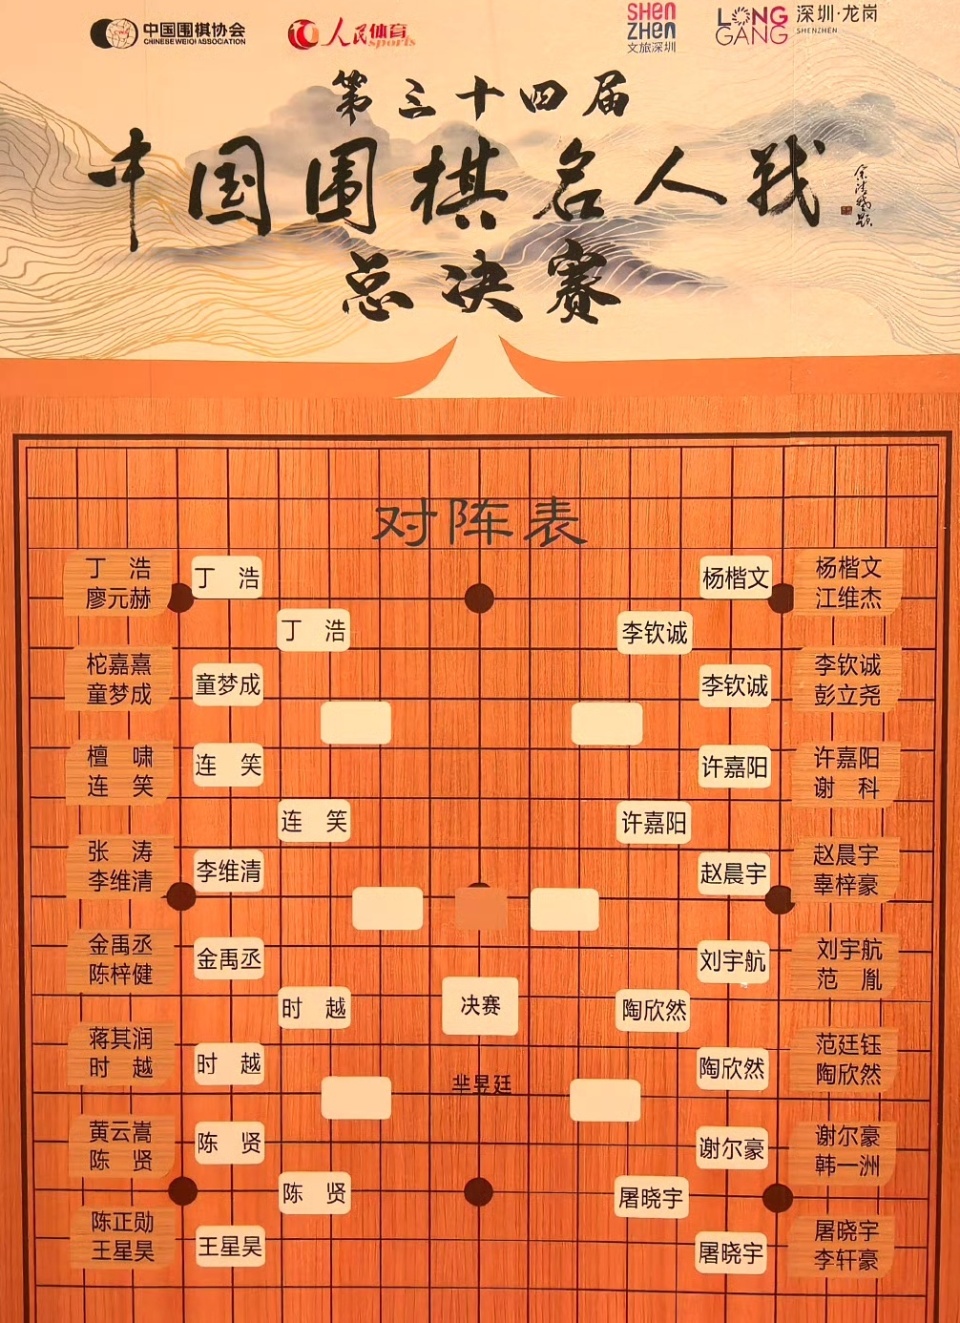 中国围棋协会
CHINESE WEIQI ASSOCIATION
人民体育
sports
SHEN
ZHEN
文旅深圳
LONG
GANG
深圳·龙岗
SHENZHEN
第三十四届
中国围棋名人战
总决赛
对阵表
丁浩
廖元赫
柁嘉熹
童梦成
檀啸
连笑
张涛
李维清
金禹丞
陈梓健
蒋其润
时越
黄云嵩
陈贤
陈正勋
王星昊
丁浩
童梦成
连笑
李维清
金禹丞
时越
陈贤
王星昊
丁浩
连笑
时越
陈贤
决赛
芈昱廷
李钦诚
许嘉阳
陶欣然
屠晓宇
杨楷文
李钦诚
许嘉阳
赵晨宇
刘宇航
陶欣然
谢尔豪
屠晓宇
杨楷文
江维杰
李钦诚
彭立尧
许嘉阳
谢科
赵晨宇
辜梓豪
刘宇航
范胤
范廷钰
陶欣然
谢尔豪
韩一洲
屠晓宇
李轩豪